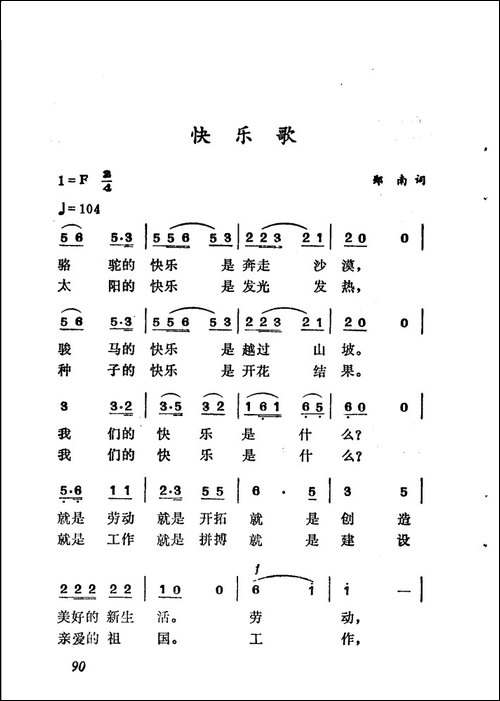 快乐歌
1=F 2/4 郑南词
♩=104
5 6 5·3 | 5 5 6 5 3 | 2 2 3 2 1 | 2 0 0 |
骆 驼的 快乐 是 奔走 沙 漠，
太 阳的 快乐 是 发光 发 热，
5 6 5·3 | 5 5 6 5 3 | 2 2 3 2 1 | 2 0 0 |
骏 马的 快乐 是 越过 山 坡。
种 子的 快乐 是 开花 结 果。
3 3·2 | 3·5 3 2 | 1 6 1 6 5 | 6 0 0 |
我 们的 快 乐 是 什 么？
我 们的 快 乐 是 什 么？
5·6 1 1 | 2·3 5 5 | 6 · 5 | 3 5 |
就是 劳动 就是 开拓 就 是 创 造
就是 工作 就是 拼搏 就 是 建 设
f
2 2 2 2 2 | 1 0 0 | 6 1 | 1 — |
美好的 新生 活。 劳 动，
亲爱的 祖 国。 工 作，
90